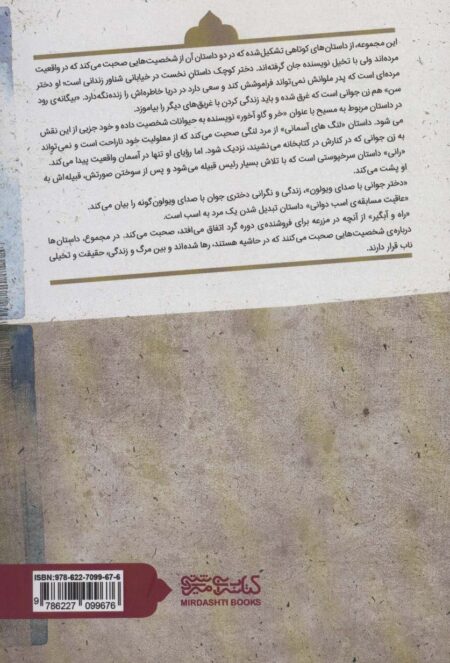 این مجموعه، از داستان‌های کوتاهی تشکیل‌شده که در دو داستان آن از شخصیت‌هایی صحبت می‌کند که در واقعیت
مرده‌اند ولی با تخیل نویسنده جان گرفته‌اند. دختر کوچک داستانِ نخست در خیابانی شناور زندانی است؛ او دختر
مرده‌ای است که پدر ملوانش نمی‌تواند فراموشش کند و سعی دارد در دریا خاطره‌اش را زنده‌نگه‌دارد. «بیگانه‌ی رود
سن» هم زن جوانی است که غرق شده و باید زندگی کردن با غریق‌های دیگر را بیاموزد.
در داستان مربوط به مسیح با عنوان «خر و گاو آخور» نویسنده به حیوانات شخصیت داده و خود جزیی از این نقش
می شود. داستان «لنگ های آسمانی» از مرد لنگی صحبت می‌کند که از معلولیت خود ناراحت است و نمی‌تواند
به زن جوانی که در کنارش در کتابخانه می‌نشیند، نزدیک شود. اما رؤیای او تنها در آسمان واقعیت پیدا می‌کند.
«رانی» داستان سرخپوستی است که با تلاش بسیار رئیس قبیله می‌شود و پس از سوختن صورتش، قبیله‌اش به
او پشت می‌کند.
«دختر جوانی با صدای ویولون»، زندگی و نگرانی دختری جوان با صدای ویولون‌گونه را بیان می‌کند.
«عاقبت مسابقه‌ی اسب دوانی» داستان تبدیل شدن یک مرد به اسب است.
«راه و آبگیر» از آنچه در مزرعه برای فروشنده‌ی دوره گرد اتفاق می‌افتد، صحبت می‌کند. در مجموع، داستان‌ها
درباره‌ی شخصیت‌هایی صحبت می‌کنند که در حاشیه هستند، رها شده‌اند و بین مرگ و زندگی، حقیقت و تخیلی
ناب قرار دارند.
ISBN: 978-622-7099-67-6
9 786227 099676
کتابسرای میردشتی
MIRDASHTI BOOKS